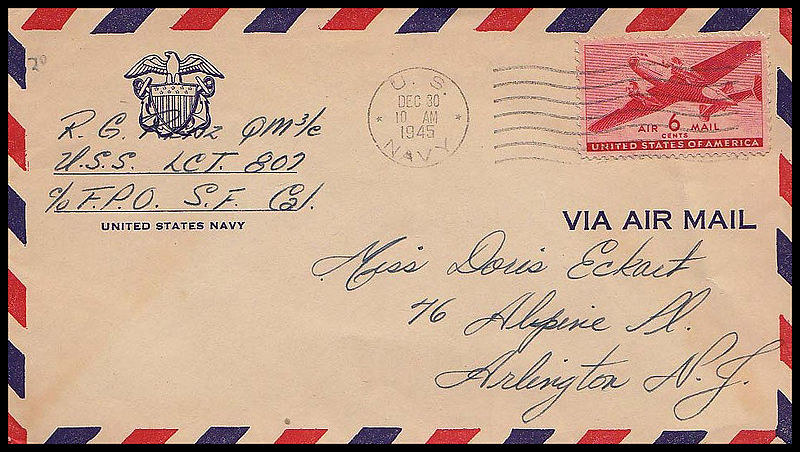 20
R. G. QM 3/c
U.S.S. LCT. 802
c/o F.P.O. S.F. Cal.
UNITED STATES NAVY
U. S.
DEC 30
10 AM
1945
NAVY
AIR 6 MAIL
CENTS
UNITED STATES OF AMERICA
VIA AIR MAIL
Miss Doris Eckart
76 Alpine Pl.
Arlington N.J.